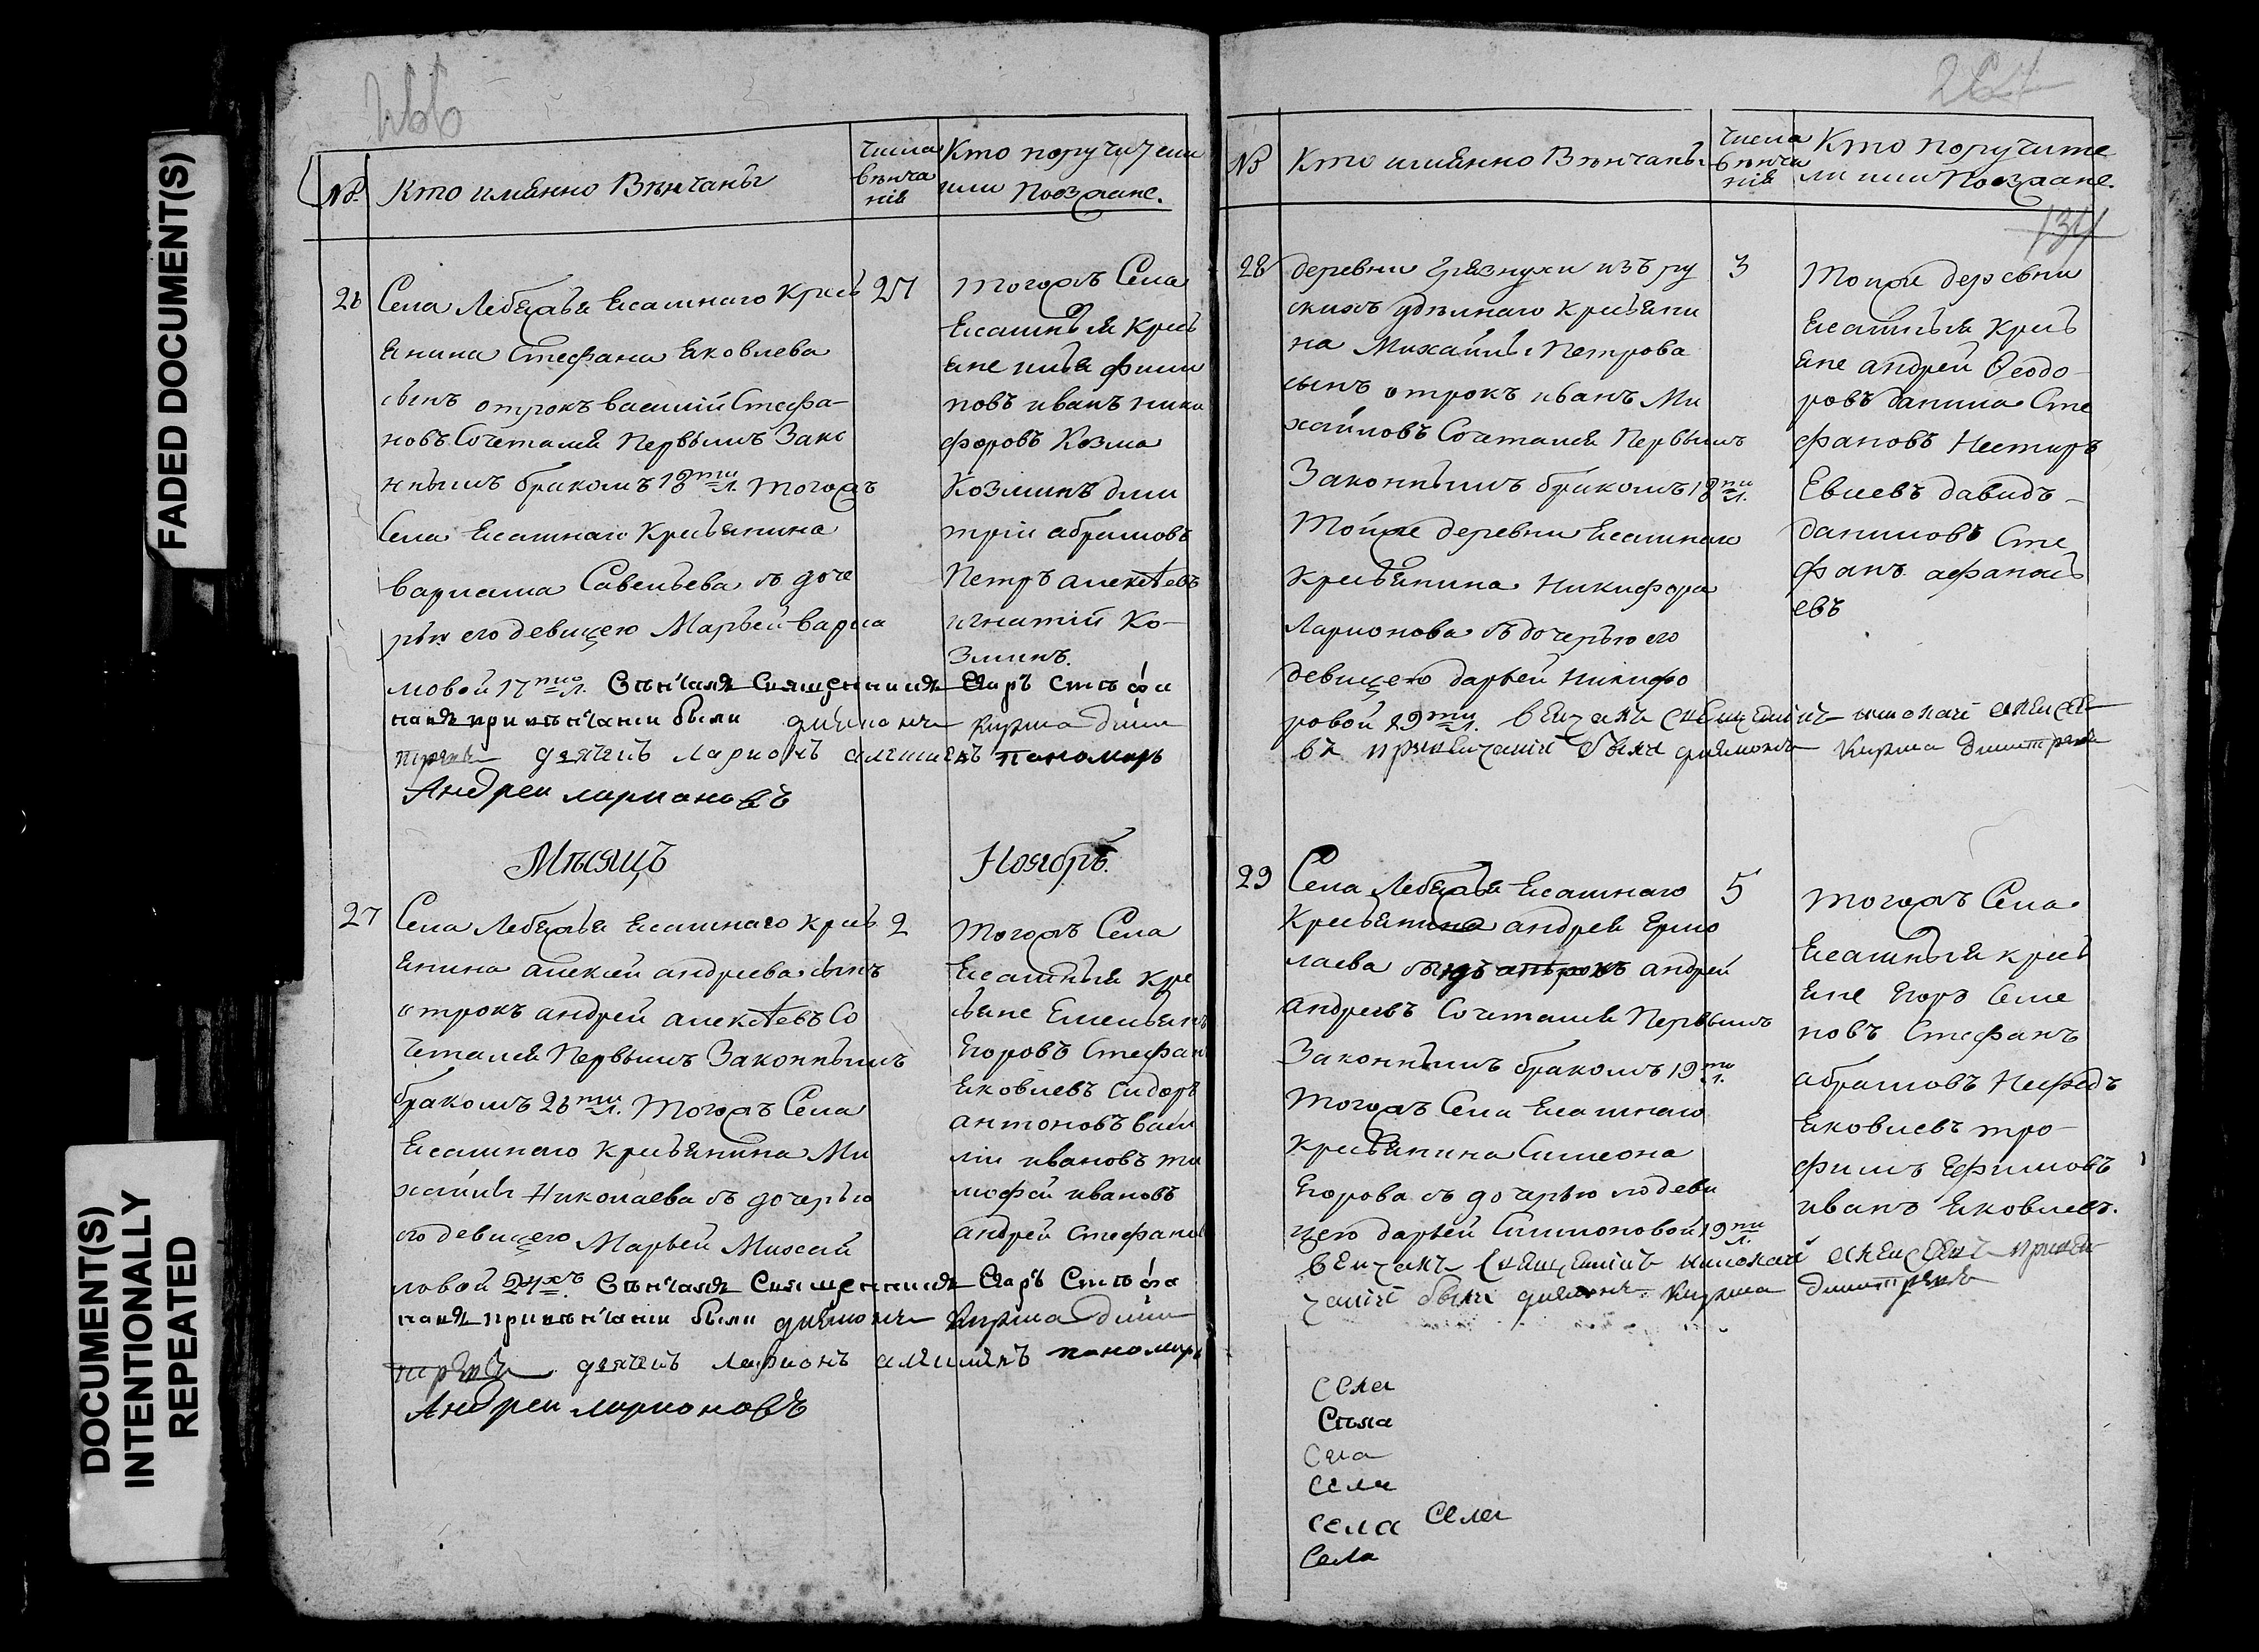 FADED DOCUMENT(S)
DOCUMENT(S)
INTENTIONALLY
REPEATED
266
№
Кто имянно Вѣнчаны
Числа
вѣнча
нія
Кто поручители
или Поезжане.
26
Села Лебяжья Ясашнаго Крес
янина Стефана Яковлева
сынъ отрокъ василій Стефа-
новъ Сочетался Первымъ Зако
ннымъ бракомъ 18ти л. тогожъ
Села Ясашнаго Кресьянина
варлама Савельева съ доче
рью его девицею Марьей варла
мовой 17ти л. Вѣнчалъ Священникъ Егоръ Стефа
новъ при вѣнчании были диаконъ Кирила Дими
триевъ дячекъ Ларионъ пономарь
Андреи ларионовъ
27
тогожъ Села
Ясашныя Крес
яне илья фили
повъ иванъ ники
форовъ Козма
Козминъ дми
трiи абрамовъ
Петръ алексѣевъ
игнатiй Ко-
зминъ.
Мѣсяцъ
Ноябрь.
27
Села Лебяжья Ясашнаго крес
янина алексея андреева сынъ
отрокъ андрей алексѣевъ Со
четался Первымъ Законнымъ
бракомъ 26ти л. тогожъ Села
Ясашнаго Кресьянина Ми
хайлы Николаева съ дочерью
его девицею Марьей Михай
ловой 24хъ Вѣнчалъ Священникъ Егоръ Стефа
новъ при вѣнчании были диаконъ Кирила Дими
триевъ дячекъ Ларионъ пономарь
Андреи ларионовъ
2
тогожъ Села
Ясашныя Кре
сьяне Емельянъ
Егоровъ Стефанъ
Яковлевъ Сидоръ
антоновъ васи
лiи ивановъ ти
мофей ивановъ
андрей Стефановъ
№
Кто имянно Вѣнчаны
Числа
вѣнча
нія
Кто Поручите
ли или Поезжане.
134
28
деревни Грязнухи изъ ру
скихъ удѣлнаго Кресьяни
на Михайлы Петрова
сынъ отрокъ иванъ Ми
хайловъ Сочетался Первымъ
Законнымъ бракомъ 18ти л.
Тойже деревни Ясашнаго
Кресьянина Никифора
Ларионова съ дочерью его
девицею дарьей Никифо
ровой 19ти л. венчалъ священникъ николай алексее
въ при венчании были диаконъ Кирила Димитриевъ
3
Тойже деревни
Ясашныя Крес
яне андрей Ѳеодо-
ровъ данила Сте
фановъ Нестиръ
Евсевъ давидъ
даниловъ Сте
фанъ афанась
евъ
29
Села Лебяжья Ясашнаго
Кресьянина андрея Ермо
лаева сынъ отрокъ андрей
андреевъ Сочетался Первымъ
Законнымъ бракомъ 19ти л.
тогожъ Села Ясашнаго
Кресьянина Симеона
Егорова съ дочерью его деви
цею дарьей Симионовой 19ти л.
венчалъ священникъ николай алексеевъ при вен
чании были диаконъ Кирила Димитриевъ
5
тогожъ Села
Ясашныя крес
яне Егоръ Семе
новъ Стефанъ
абрамовъ Нефедъ
Яковлевъ тро-
фимъ Ефимовъ
иванъ Яковлевъ.
села
Села
Села
села
села села
села